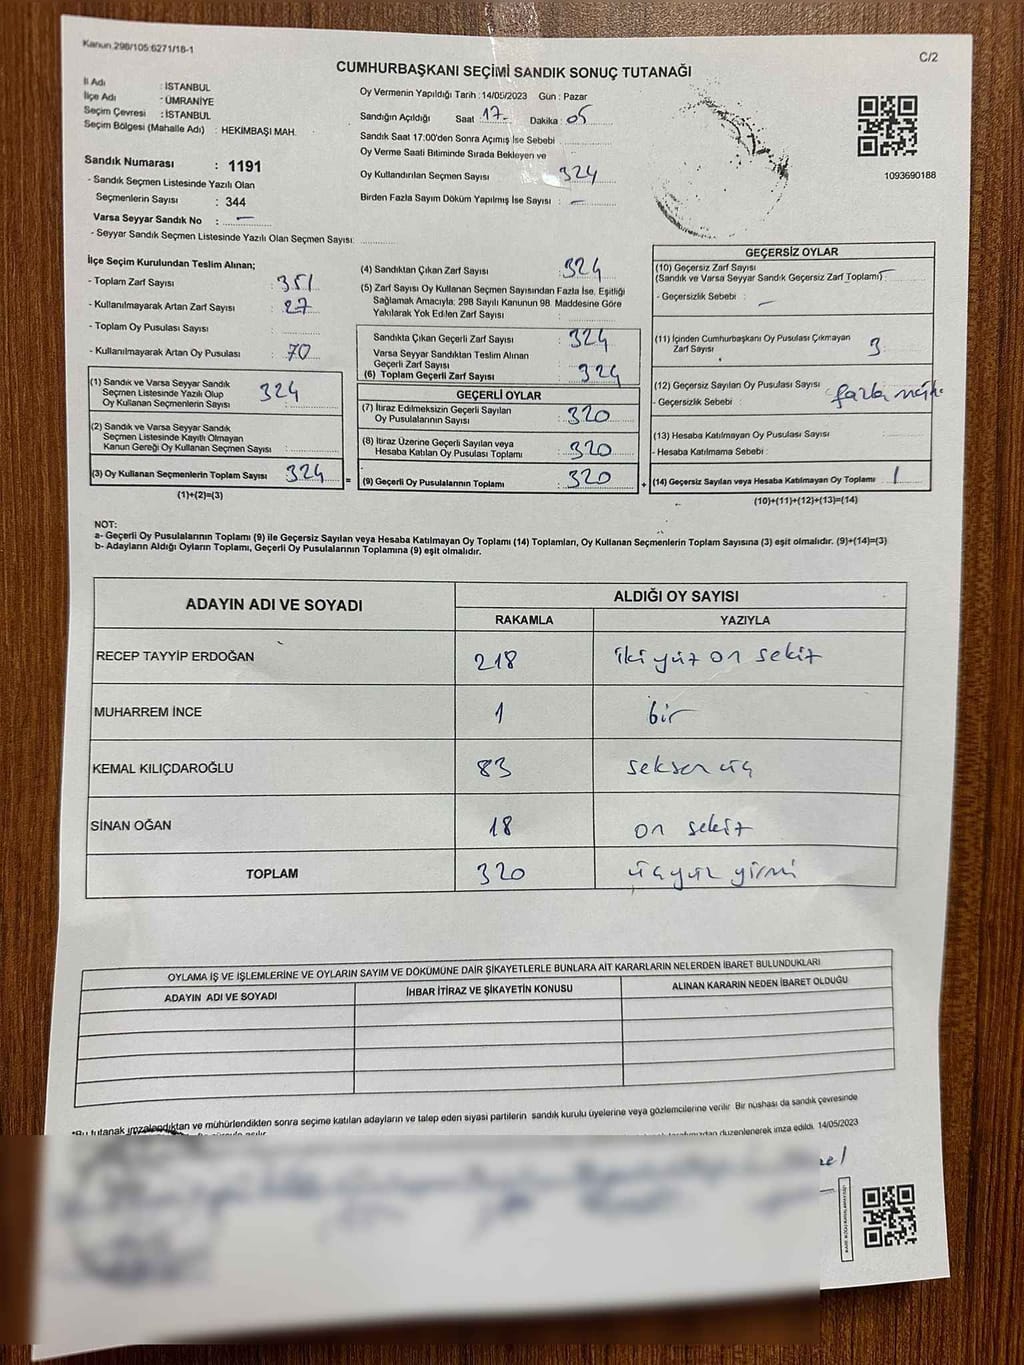 Kanun 298/105:6271/18-1
C/2
CUMHURBAŞKANI SEÇİMİ SANDIK SONUÇ TUTANAĞI
İl Adı : İSTANBUL
İlçe Adı : ÜMRANİYE
Seçim Çevresi : İSTANBUL
Seçim Bölgesi (Mahalle Adı) : HEKİMBAŞI MAH.
Sandık Numarası : 1191
- Sandık Seçmen Listesinde Yazılı Olan
Seçmenlerin Sayısı : 344
Varsa Seyyar Sandık No : -
- Seyyar Sandık Seçmen Listesinde Yazılı Olan Seçmen Sayısı:
Oy Vermenin Yapıldığı Tarih : 14/05/2023 Gün : Pazar
Sandığın Açıldığı Saat 17 Dakika : 05
Sandık Saat 17:00'den Sonra Açımış İse Sebebi
Oy Verme Saati Bitiminde Sırada Bekleyen ve
Oy Kullandırılan Seçmen Sayısı : 324
Birden Fazla Sayım Döküm Yapılmış İse Sayısı : -
1093690188
İlçe Seçim Kurulundan Teslim Alınan;
- Toplam Zarf Sayısı : 351
- Kullanılmayarak Artan Zarf Sayısı : 27
- Toplam Oy Pusulası Sayısı :
- Kullanılmayarak Artan Oy Pusulası : 70
(1) Sandık ve Varsa Seyyar Sandık
Seçmen Listesinde Yazılı Olup
Oy Kullanan Seçmenlerin Sayısı : 324
(2) Sandık ve Varsa Seyyar Sandık
Seçmen Listesinde Kayıtlı Olmayan
Kanun Gereği Oy Kullanan Seçmen Sayısı :
(3) Oy Kullanan Seçmenlerin Toplam Sayısı : 324
(1)+(2)=(3)
(4) Sandıktan Çıkan Zarf Sayısı : 324
(5) Zarf Sayısı Oy Kullanan Seçmen Sayısından Fazla İse, Eşitliği
Sağlamak Amacıyla; 298 Sayılı Kanunun 98. Maddesine Göre
Yakılarak Yok Edilen Zarf Sayısı :
Sandıkta Çıkan Geçerli Zarf Sayısı : 324
Varsa Seyyar Sandıktan Teslim Alınan
Geçerli Zarf Sayısı :
(6) Toplam Geçerli Zarf Sayısı : 324
GEÇERLİ OYLAR
(7) İtiraz Edilmeksizin Geçerli Sayılan
Oy Pusulalarının Sayısı : 320
(8) İtiraz Üzerine Geçerli Sayılan veya
Hesaba Katılan Oy Pusulası Toplamı : 320
= (9) Geçerli Oy Pusulalarının Toplamı : 320 +
GEÇERSİZ OYLAR
(10) Geçersiz Zarf Sayısı
(Sandık ve Varsa Seyyar Sandık Geçersiz Zarf Toplamı) :
- Geçersizlik Sebebi : -
(11) İçinden Cumhurbaşkanı Oy Pusulası Çıkmayan
Zarf Sayısı : 3
(12) Geçersiz Sayılan Oy Pusulası Sayısı
- Geçersizlik Sebebi : fazla
(13) Hesaba Katılmayan Oy Pusulası Sayısı :
- Hesaba Katılmama Sebebi :
(14) Geçersiz Sayılan veya Hesaba Katılmayan Oy Toplamı : 1
(10)+(11)+(12)+(13)=(14)
NOT:
a- Geçerli Oy Pusulalarının Toplamı (9) ile Geçersiz Sayılan veya Hesaba Katılmayan Oy Toplamı (14) Toplamları, Oy Kullanan Seçmenlerin Toplam Sayısına (3) eşit olmalıdır. (9)+(14)=(3)
b- Adayların Aldığı Oyların Toplamı, Geçerli Oy Pusulalarının Toplamına (9) eşit olmalıdır.
ADAYIN ADI VE SOYADI ALDIĞI OY SAYISI
RAKAMLA YAZIYLA
RECEP TAYYİP ERDOĞAN 218 iki yüz on sekiz
MUHARREM İNCE 1 bir
KEMAL KILIÇDAROĞLU 83 seksen üç
SİNAN OĞAN 18 on sekiz
TOPLAM 320 üçyüz yirmi
OYLAMA İŞ VE İŞLEMLERİNE VE OYLARIN SAYIM VE DÖKÜMÜNE DAİR ŞİKAYETLERLE BUNLARA AİT KARARLARIN NELERDEN İBARET BULUNDUKLARI
ADAYIN ADI VE SOYADI İHBAR İTİRAZ VE ŞİKAYETİN KONUSU ALINAN KARARIN NEDEN İBARET OLDUĞU
*Bu tutanak imzalandıktan ve mühürlendikten sonra seçime katılan adayların ve talep eden siyasi partilerin sandık kurulu üyelerine veya gözlemcilerine verilir. Bir nüshası da sandık çevresinde
tarafımızdan düzenlenerek imza edildi. 14/05/2023